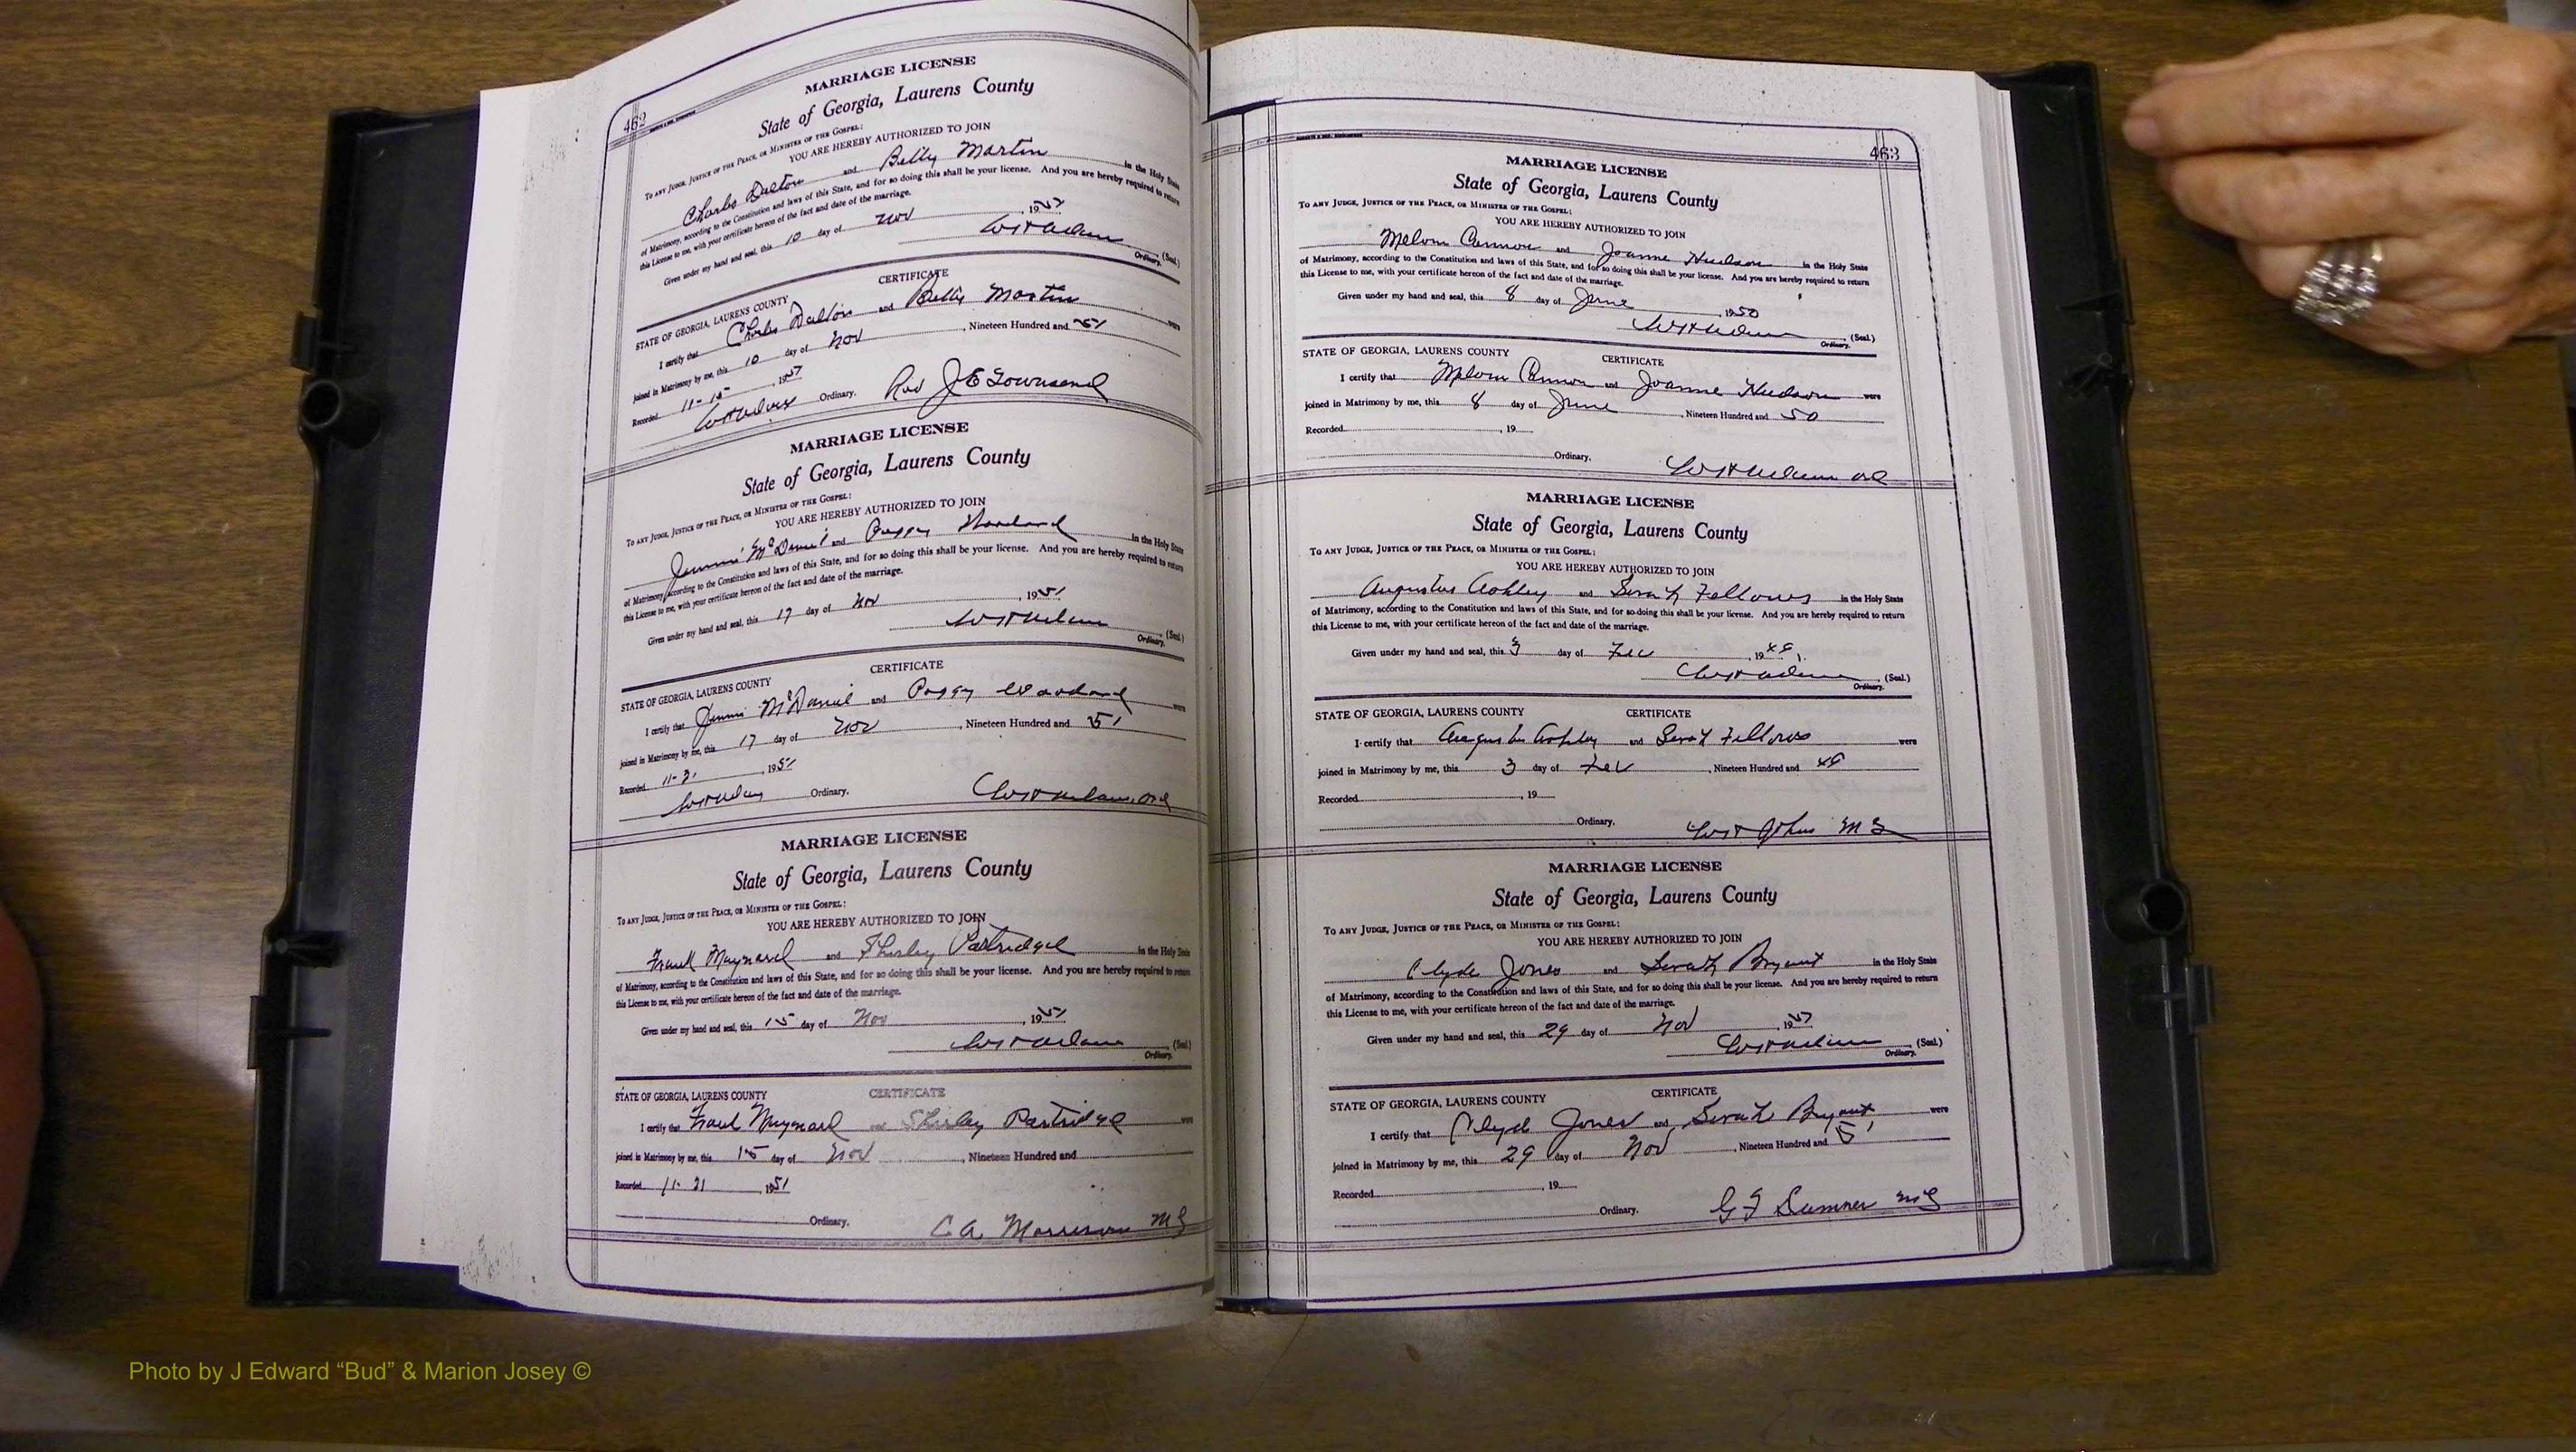 462
MARRIAGE LICENSE
State of Georgia, Laurens County
TO ANY JUDGE, JUSTICE OF THE PEACE, OR MINISTER OF THE GOSPEL:
YOU ARE HEREBY AUTHORIZED TO JOIN
Charles Dalton and Betty Martin in the Holy State
of Matrimony, according to the Constitution and laws of this State, and for so doing this shall be your license. And you are hereby required to return
this License to me, with your certificate hereon of the fact and date of the marriage.
Given under my hand and seal, this 10 day of Nov, 1951
(Seal)
Ordinary.
CERTIFICATE
STATE OF GEORGIA, LAURENS COUNTY
I certify that Charles Dalton and Betty Martin were
joined in Matrimony by me, this 10 day of Nov, Nineteen Hundred and 51
Recorded 11-15, 1951
Ordinary. Rev J E Townsend
MARRIAGE LICENSE
State of Georgia, Laurens County
TO ANY JUDGE, JUSTICE OF THE PEACE, OR MINISTER OF THE GOSPEL:
YOU ARE HEREBY AUTHORIZED TO JOIN
McDaniel and Peggy in the Holy State
of Matrimony, according to the Constitution and laws of this State, and for so doing this shall be your license. And you are hereby required to return
this License to me, with your certificate hereon of the fact and date of the marriage.
Given under my hand and seal, this 17 day of Nov, 1951
(Seal)
Ordinary.
CERTIFICATE
STATE OF GEORGIA, LAURENS COUNTY
I certify that McDaniel and Peggy Woodard were
joined in Matrimony by me, this 17 day of Nov, Nineteen Hundred and 51
Recorded 11-21, 1951
Ordinary.
MARRIAGE LICENSE
State of Georgia, Laurens County
TO ANY JUDGE, JUSTICE OF THE PEACE, OR MINISTER OF THE GOSPEL:
YOU ARE HEREBY AUTHORIZED TO JOIN
Frank Maynard and Shirley Partridge in the Holy State
of Matrimony, according to the Constitution and laws of this State, and for so doing this shall be your license. And you are hereby required to return
this License to me, with your certificate hereon of the fact and date of the marriage.
Given under my hand and seal, this 15 day of Nov, 1951
(Seal)
Ordinary.
STATE OF GEORGIA, LAURENS COUNTY CERTIFICATE
I certify that Frank Maynard and Shirley Partridge were
joined in Matrimony by me, this 15 day of Nov, Nineteen Hundred and
Recorded 11-21, 1951
Ordinary. C A Morrison M G
463
MARRIAGE LICENSE
State of Georgia, Laurens County
TO ANY JUDGE, JUSTICE OF THE PEACE, OR MINISTER OF THE GOSPEL:
YOU ARE HEREBY AUTHORIZED TO JOIN
Melvin Cannon and Joanne Hudson in the Holy State
of Matrimony, according to the Constitution and laws of this State, and for so doing this shall be your license. And you are hereby required to return
this License to me, with your certificate hereon of the fact and date of the marriage.
Given under my hand and seal, this 8 day of June, 1950
(Seal)
Ordinary.
STATE OF GEORGIA, LAURENS COUNTY CERTIFICATE
I certify that Melvin Cannon and Joanne Hudson were
joined in Matrimony by me, this 8 day of June, Nineteen Hundred and 50
Recorded, 19
Ordinary.
MARRIAGE LICENSE
State of Georgia, Laurens County
TO ANY JUDGE, JUSTICE OF THE PEACE, OR MINISTER OF THE GOSPEL:
YOU ARE HEREBY AUTHORIZED TO JOIN
Augustus Ashley and Sarah Fellows in the Holy State
of Matrimony, according to the Constitution and laws of this State, and for so doing this shall be your license. And you are hereby required to return
this License to me, with your certificate hereon of the fact and date of the marriage.
Given under my hand and seal, this 3 day of, 19
(Seal)
Ordinary.
STATE OF GEORGIA, LAURENS COUNTY CERTIFICATE
I certify that Ashley and Sarah Fellows were
joined in Matrimony by me, this 3 day of, Nineteen Hundred and
Recorded, 19
Ordinary.
MARRIAGE LICENSE
State of Georgia, Laurens County
TO ANY JUDGE, JUSTICE OF THE PEACE, OR MINISTER OF THE GOSPEL:
YOU ARE HEREBY AUTHORIZED TO JOIN
Clyde Jones and Sarah Bryant in the Holy State
of Matrimony, according to the Constitution and laws of this State, and for so doing this shall be your license. And you are hereby required to return
this License to me, with your certificate hereon of the fact and date of the marriage.
Given under my hand and seal, this 29 day of Nov, 1951
(Seal)
Ordinary.
STATE OF GEORGIA, LAURENS COUNTY CERTIFICATE
I certify that Clyde Jones and Sarah Bryant were
joined in Matrimony by me, this 29 day of Nov, Nineteen Hundred and 51
Recorded, 19
Ordinary. G F Sumner M G
Photo by J Edward “Bud” & Marion Josey ©